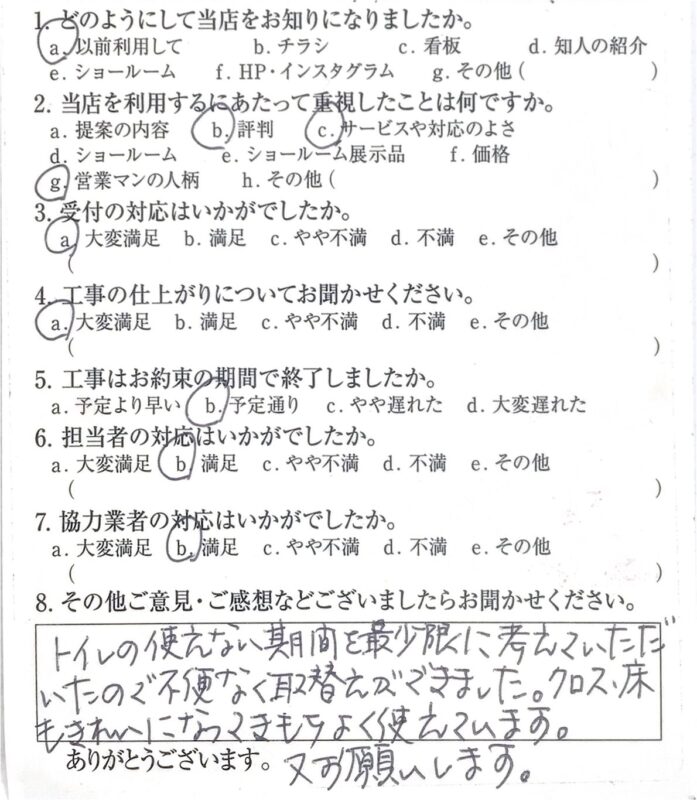 1. どのようにして当店をお知りになりましたか。
a. 以前利用して b. チラシ c. 看板 d. 知人の紹介
e. ショールーム f. HP・インスタグラム g. その他( )
2. 当店を利用するにあたって重視したことは何ですか。
a. 提案の内容 b. 評判 c. サービスや対応のよさ
d. ショールーム e. ショールーム展示品 f. 価格
g. 営業マンの人柄 h. その他( )
3. 受付の対応はいかがでしたか。
a. 大変満足 b. 満足 c. やや不満 d. 不満 e. その他
( )
4. 工事の仕上がりについてお聞かせください。
a. 大変満足 b. 満足 c. やや不満 d. 不満 e. その他
( )
5. 工事はお約束の期間で終了しましたか。
a. 予定より早い b. 予定通り c. やや遅れた d. 大変遅れた
6. 担当者の対応はいかがでしたか。
a. 大変満足 b. 満足 c. やや不満 d. 不満 e. その他
( )
7. 協力業者の対応はいかがでしたか。
a. 大変満足 b. 満足 c. やや不満 d. 不満 e. その他
( )
8. その他ご意見・ご感想などございましたらお聞かせください。
トイレの使えない期間を最少限に考えていただ
いたので不便なく取替えができました。クロス、床
もきれいになってきもちよく使えています。
ありがとうございます。 又お願いします。